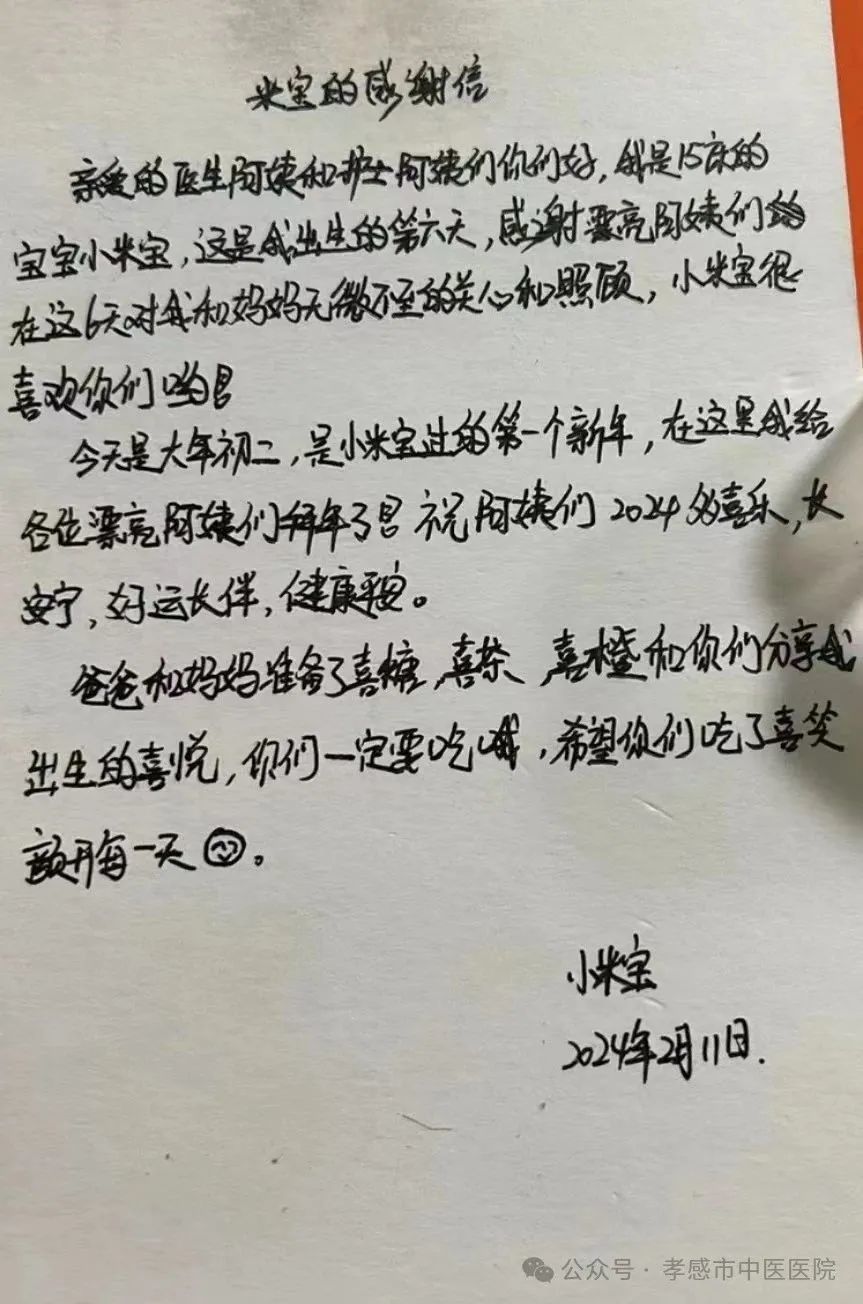 米宝的感谢信
亲爱的医生阿姨和护士阿姨们你们好，我是15床的
宝宝小米宝，这是我出生的第六天，感谢漂亮阿姨们
在这6天对我和妈妈无微不至的关心和照顾，小米宝很
喜欢你们哟！
今天是大年初二，是小米宝过的第一个新年，在这里我给
各位漂亮阿姨们拜年了！祝阿姨们2024多喜乐，长
安宁，好运长伴，健康平安。
爸爸和妈妈准备了喜糖，喜茶，喜橙和你们分享我
出生的喜悦，你们一定要吃哦，希望你们吃了喜笑
颜开每一天☺。
小米宝
2024年2月11日.
公众号·孝感市中医医院